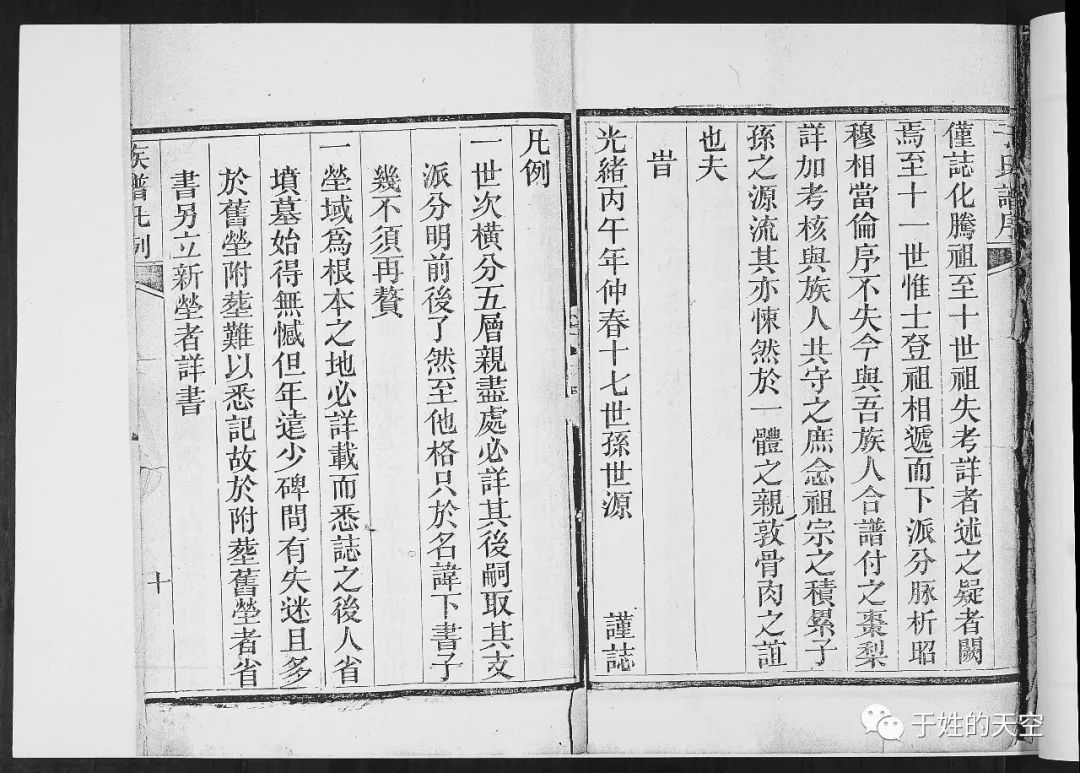 于氏譜序
僅誌化騰祖至十世祖失考詳者述之疑者闕
焉至十一世惟士登祖相遞而下派分脉析昭
穆相當倫序不失今與吾族人合譜付之棗梨
詳加考核與族人共守之庶念祖宗之積累子
孫之源流其亦悚然於一體之親敦骨肉之誼
也夫
旹
光緒丙午年仲春十七世孫世源 謹誌
凡例
一世次橫分五層親盡處必詳其後嗣取其支
派分明前後了然至他格只於名諱下書子
幾不須再贅
一塋域爲根本之地必詳載而悉誌之後人省
墳墓始得無憾但年遠少碑間有失迷且多
於舊塋附塟難以悉記故於附塟舊塋者省
書另立新塋者詳書
族譜凡例
十
于姓的天空